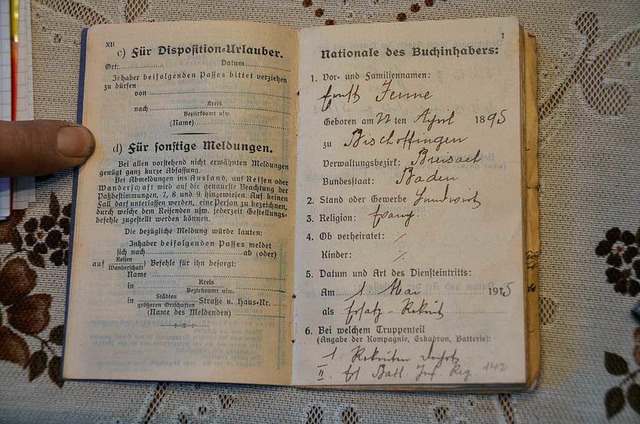 XII
c) Für Disposition-Urlauber.
Ort: Datum
Inhaber beifolgenden Passes bittet verziehen
zu dürfen
von
nach Kreis
Bezirksamt usw.
(Name)
d) Für sonstige Meldungen.
Bei allen vorstehend nicht erwähnten Meldungen
genügt ganz kurze Abfassung.
Bei Abmeldungen ins Ausland, auf Reisen oder
Wanderschaft wird auf die genaueste Beachtung der
Paßbestimmungen, 7, 8 und 9 hingewiesen. Auf keinen
Fall darf unterlassen werden, eine Person zu bezeichnen,
durch welche dem Reisenden usw. jederzeit Gestellungs-
befehle zugestellt werden können.
Die bezügliche Meldung würde lauten:
Inhaber beifolgenden Passes meldet
sich nach ab (oder)
auf Reisen
Wanderschaft) Befehle für ihn besorgt:
Name
in Kreis
Bezirksamt usw.
in Städten
größeren Ortschaften Straße u. Haus-Nr.
(Name des Meldenden)
1
Nationale des Buchinhabers:
1. Vor- und Familiennamen:
Jenne
Geboren am 22 ten April 1895
zu Bischoffingen
Verwaltungsbezirk: Breisach
Bundesstaat: Baden
2. Stand oder Gewerbe Landwirt
3. Religion: evang.
4. Ob verheiratet: /
Kinder: /
5. Datum und Art des Diensteintritts:
Am 1 Mai 1915
als Ersatz-Rekrut
6. Bei welchem Truppenteil
(Angabe der Kompagnie, Eskadron, Batterie):
1 Rekruten Depot
II. Batl. Inf. Reg. 142